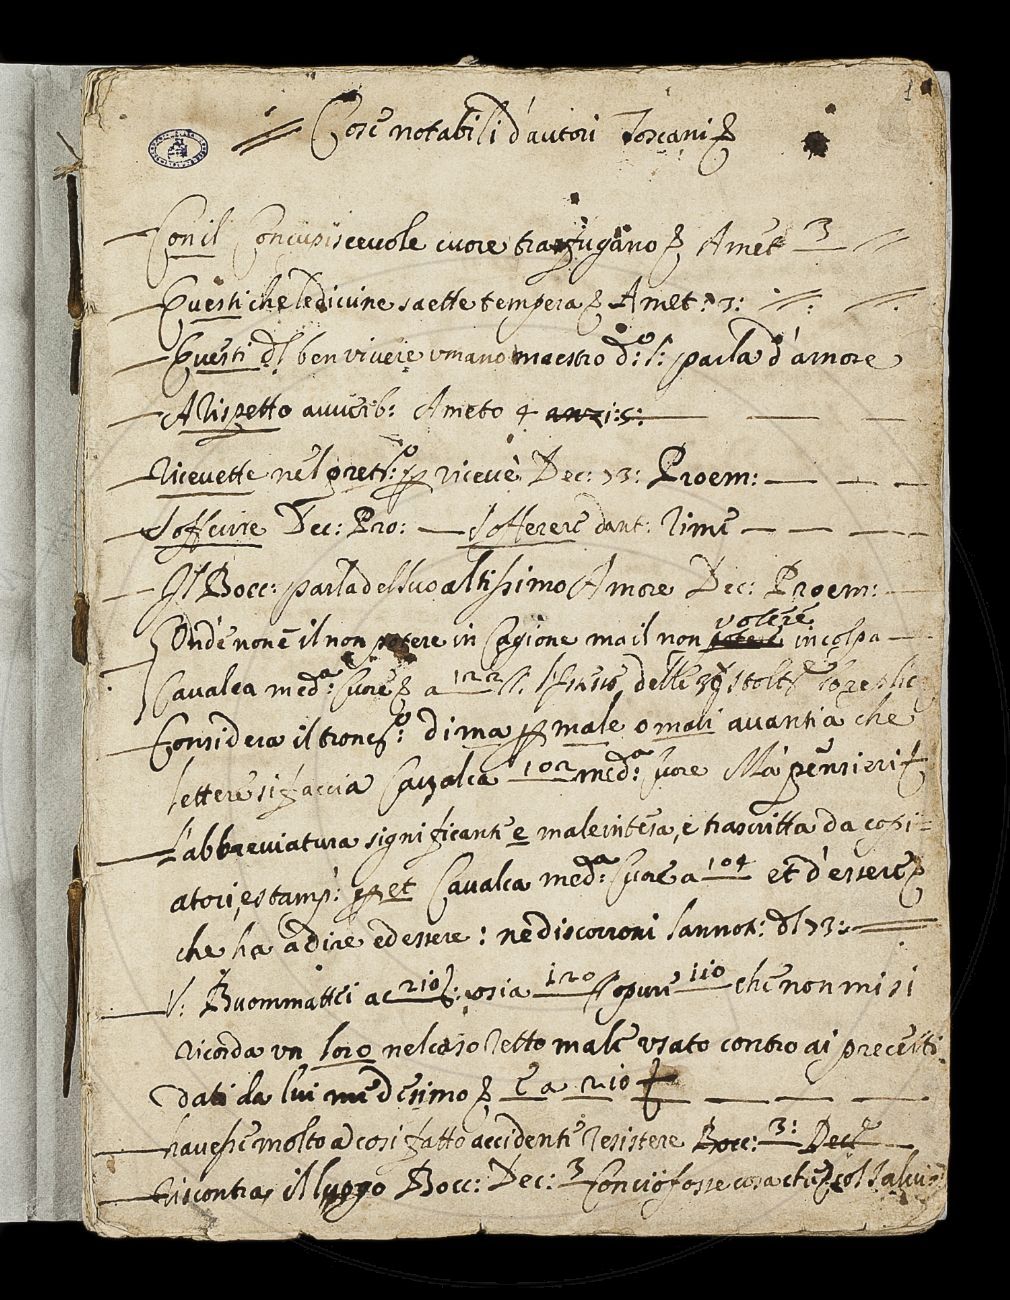 1
Cose notabili d'autori Toscani
Con il Concupiscevole cuore Amet 3
Questi che le divine saette tempera Amet: 3:
Questi dl ben vivere umano maestro d:o l: parla d'amore
A rispetto avverb: Ameto 4 anzi: 5:
Ricevette nel pret:o p ricevè Dec: 73: Proem:
Sofferire Dec: Pro: — Sofferere dant: Rime
Il Bocc: parla del suo altissimo Amore Dec: Proem:
Onde non è il non potere in Cagione ma il non potere volere in colpa
Cavalca med:a Cuore a 122 delle 30
Considera il tronc:o di ma p male o mali avanti a che
lettere si faccia Cavalca 102 med:a Cuore Ma pensieri
L'abbreviatura significante e male intesa, e trascritta da copi=
atori, e stamp: p et Cavalca med:a Cuore a 104 et d'essere
che ha a dire ed essere: ne discorroni l'annot: dl 73:
V. Buommattei ac 210 : o sia 120 opure 110 che non mi si
ricorda un loro nel caso retto male usato contro ai precetti
dati da lui medesimo è a 210
havesse molto a così fatto accidente resistere Bocc: 3: Dec
riscontra il luogo Bocc: Dec: 3 conciofosse cosa che col